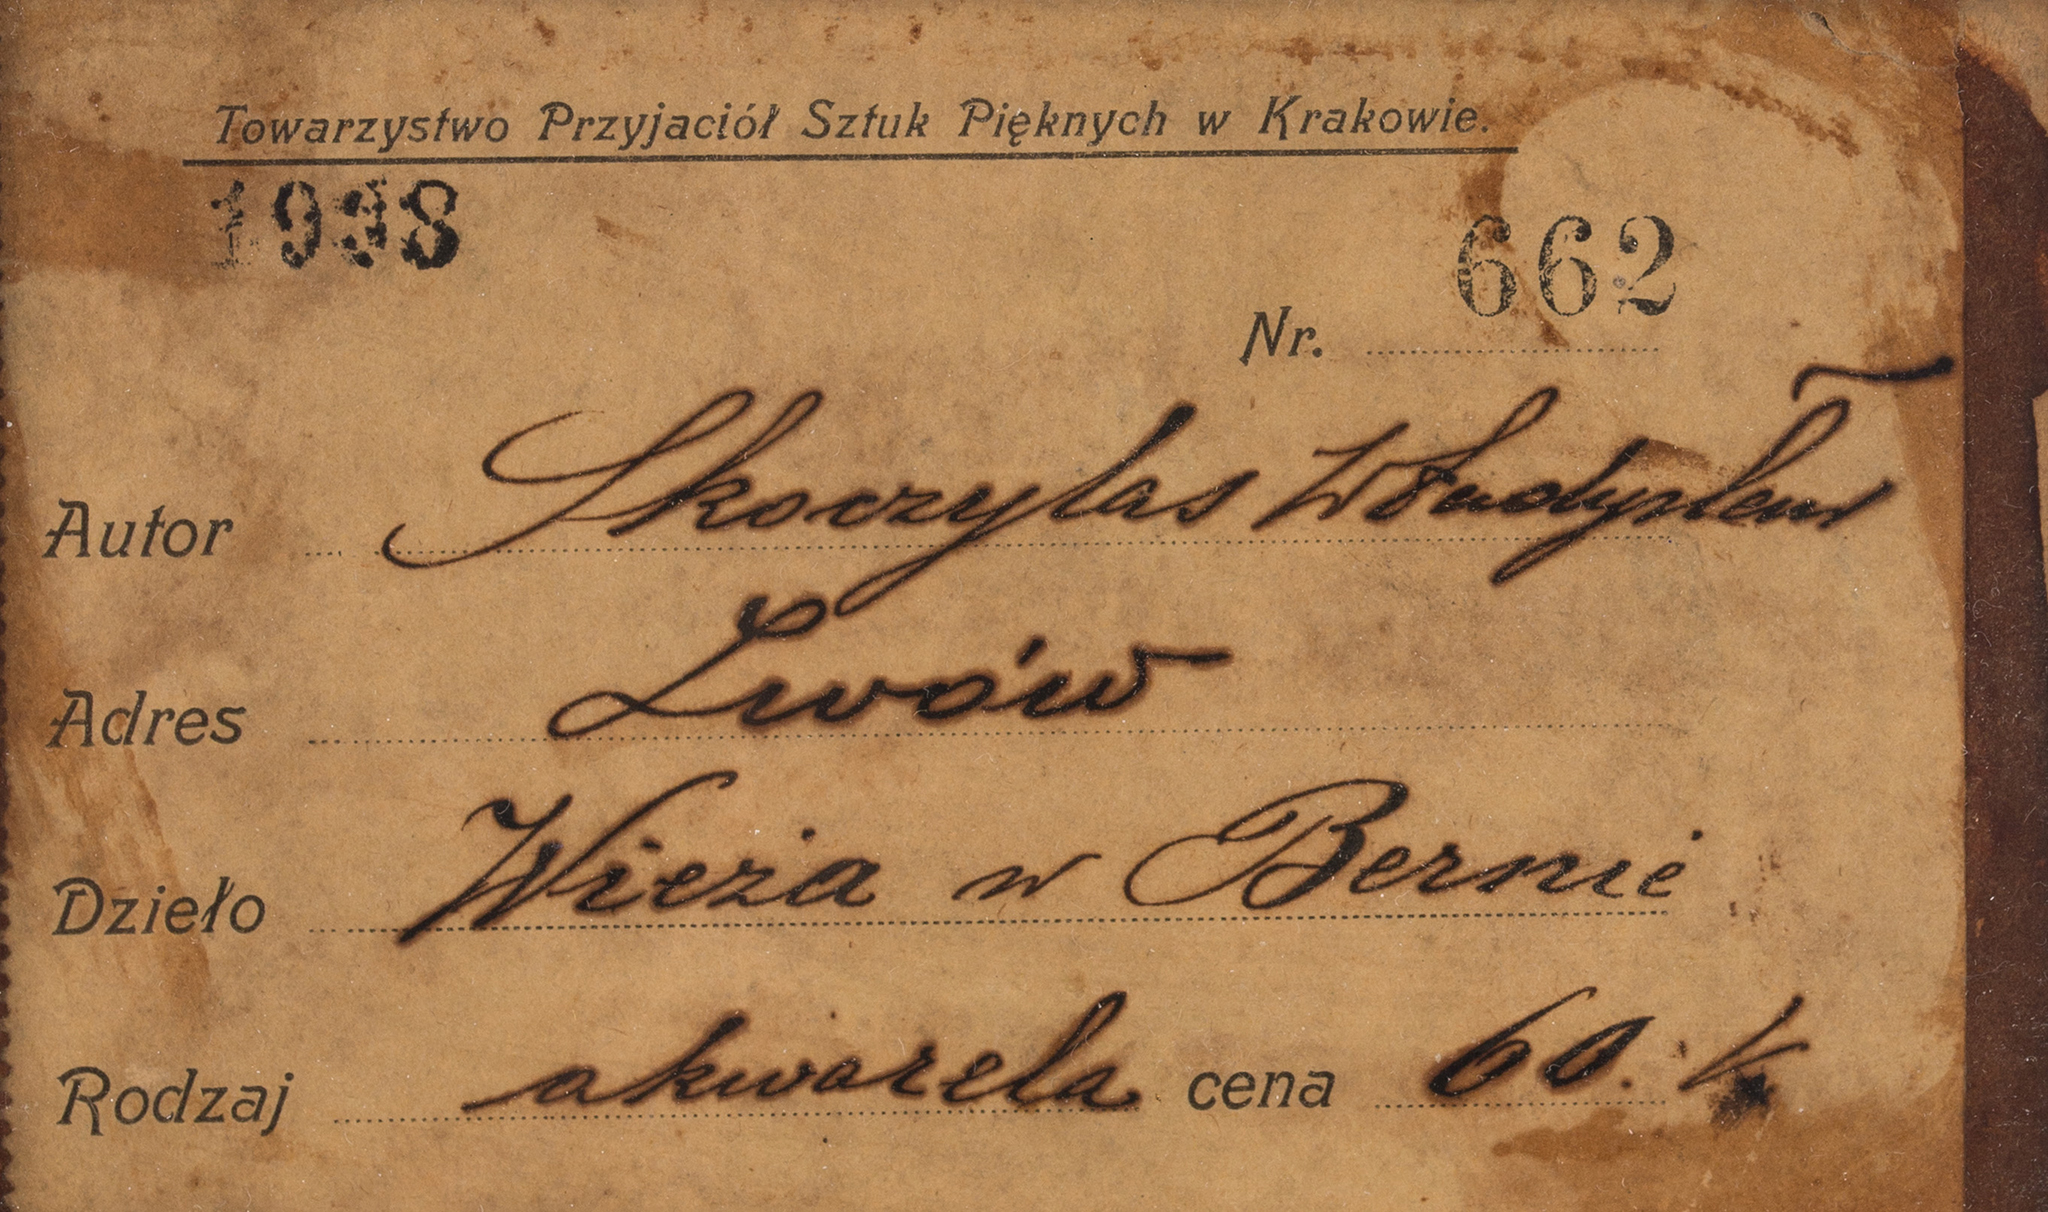 Towarzystwo Przyjaciół Sztuk Pięknych w Krakowie.
1938
662
Nr.
Autor Skoczylas Władysław
Adres Lwów
Dzieło Wieża w Bernie
Rodzaj akwarela cena 60. k